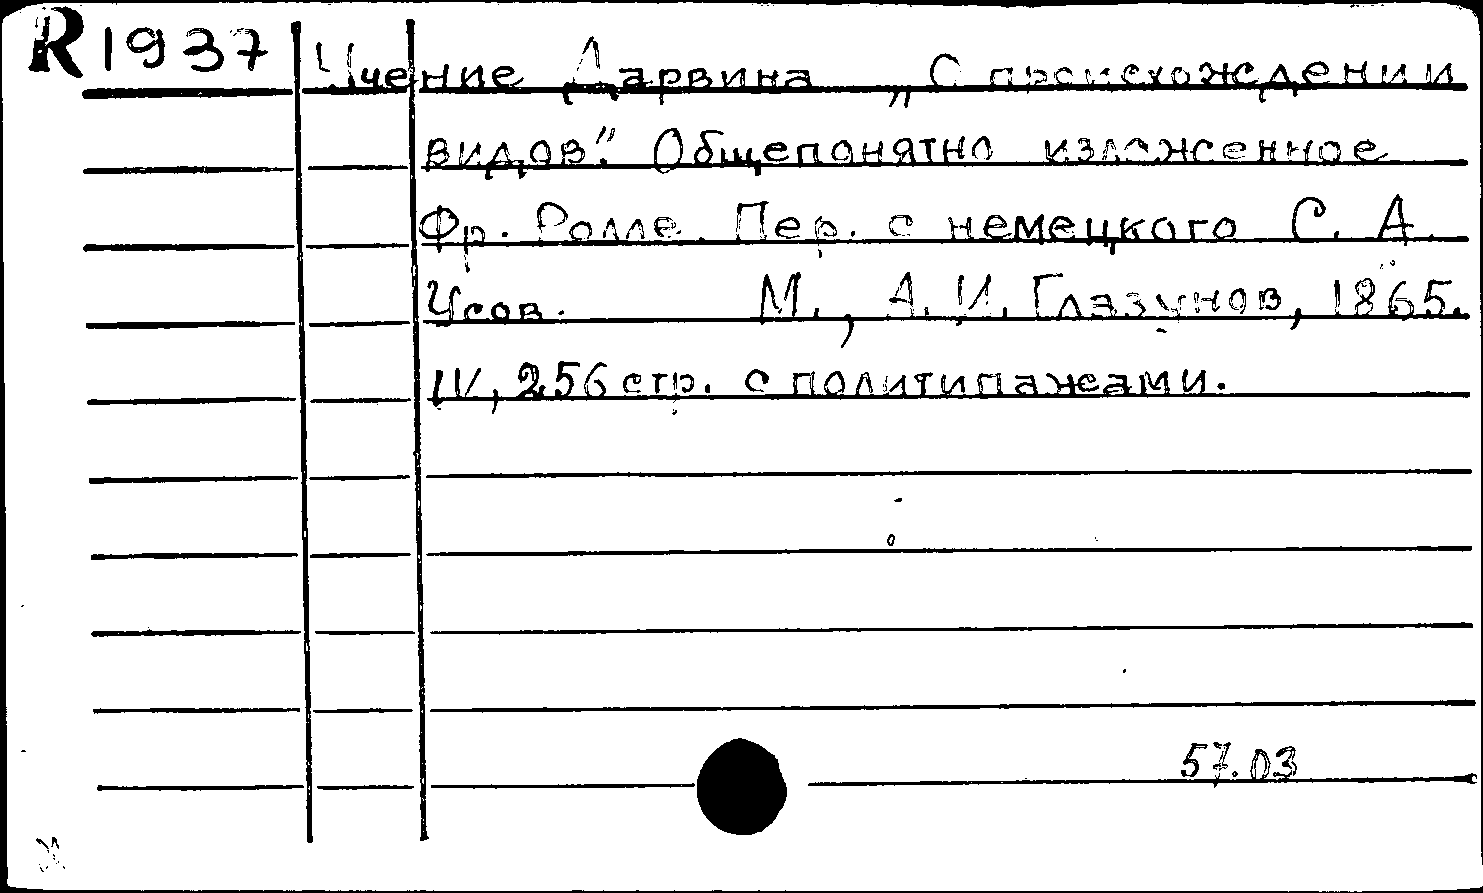 R1937 Учение Дарвина „О происхождении
видов". Общепонятно изложенное
Фр. Ролле. Пер. с немецкого С. А.
Усов. М., А. И. Глазунов, 1865.
IV, 256 стр. с политипажами.
57.03